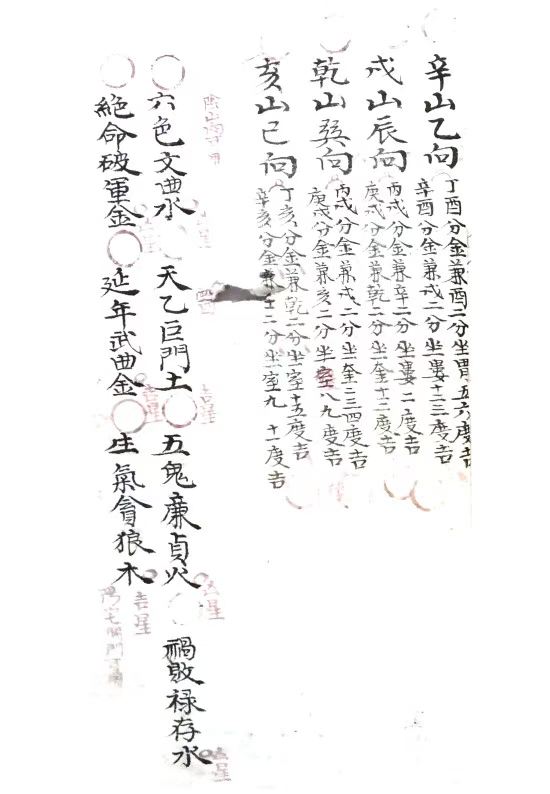 辛山乙向
丁酉分金兼酉二分坐胃五六度吉
辛酉分金兼戌二分坐婁十三度吉
戌山辰向
丙戌分金兼辛二分坐婁二度吉
庚戌分金兼乾二分坐奎十三度吉
乾山巽向
丙戌分金兼戌二分坐奎三四度吉
庚戌分金兼亥二分坐室八九度吉
亥山巳向
丁亥分金兼乾二分坐室十五度吉
辛亥分金兼壬二分坐室九十一度吉
六色文曲水
天乙巨門土
吉星
五鬼廉貞火
吉星
禍敗祿存水
吉星
絕命破軍金
延年武曲金
吉星
生氣貪狼木
吉星